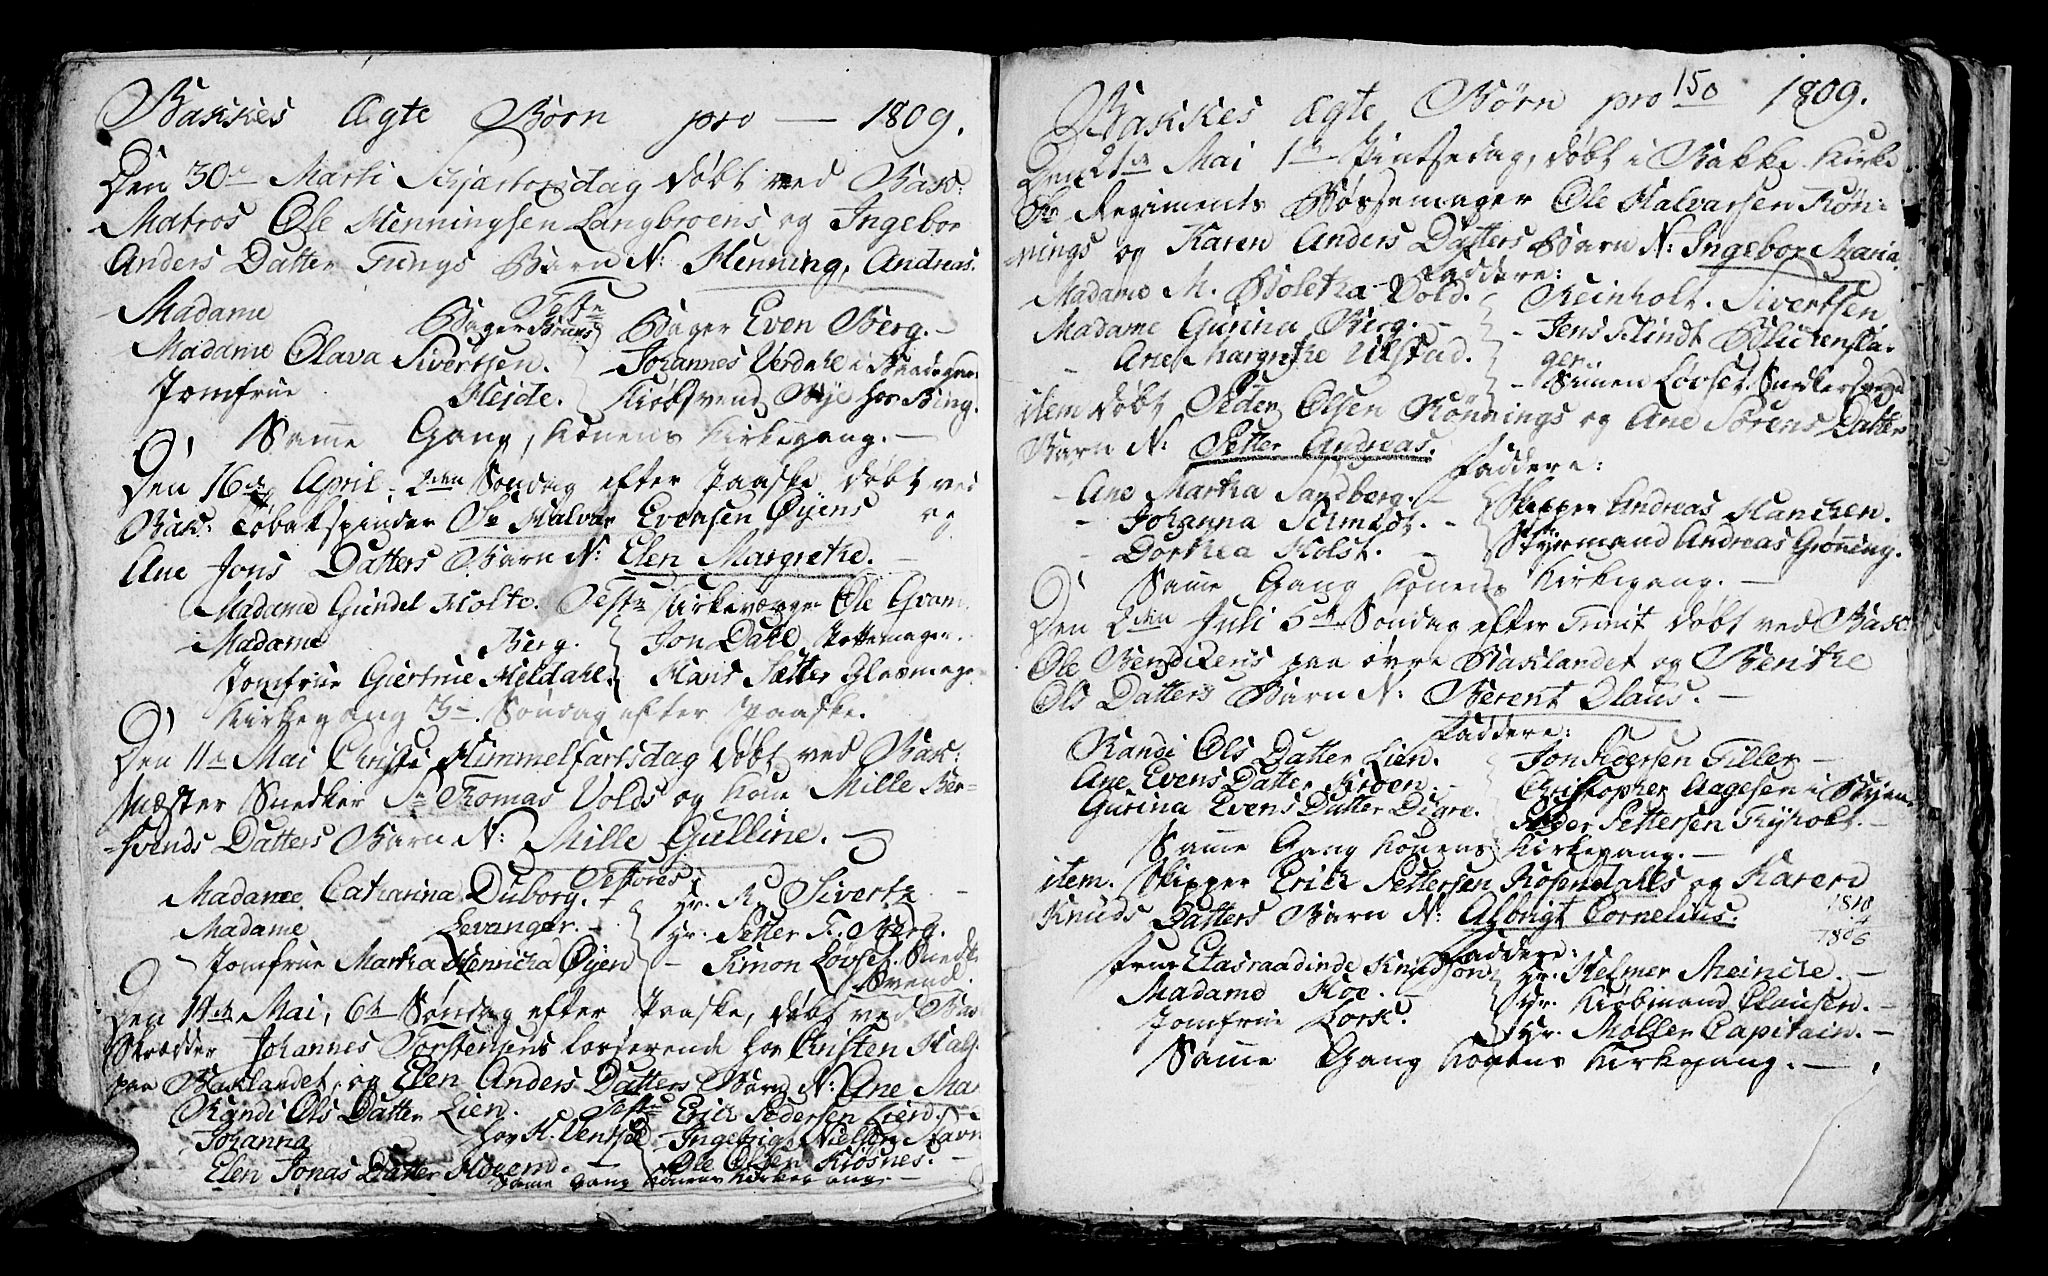 Bakkes Ægte Börn pro — 1809.
Den 30te Marti Skjærtorsdag döbt ved Bak:
Matros Ole Henningsen Langbroens og Ingebor
Anders Datter Tungs Barn N: Henning, Andreas.
Test:
Madame Bager Bruns Bager Even Berg. —
Madame Olava Sivertsen. Johannes Verdahl i
Jomfrue Hejde. Kiöbsvend Bye hos Bing.
Samme Gang, Konens Kirkegang. —
Den 16de April, 2den Söndag efter Paaske döbt ved
Bak: Tobakspinder Sr Halvar Evensen Öyens og
Ane Jons Datters Barn N: Elen Margrethe. —
Madame Gundel Holte. Test: Kirkeværge Ole Gram
Madame Berg. Jon Dahl Pottemager.
Jomfrue Giertrue Meldahl. Hans Sætter Glasmager
Kirkegang 3de Söndag efter Paaske.
Den 11te Mai Christi Himmelfartsdag döbt ved Bak:
Mæster Snedker Sr Thomas Volds og Kone Mille Ber-
-hends Datters Barn N: Mille Gulline. —
Testores:
Madame Catharina Duborg. Hr. R. Sivertz —
Madame Levanger. — Hr. Petter F. Berg.
Jomfrue Martha Henricha Öyen — Simon Lövset Snedk
Svend.
Den 14de Mai, 6te Söndag efter Paaske, döbt ved Bak
Skrædder Johannes Torstensens losserende hos Christen Hal
paa Baklandet, og Elen Anders Datters Barn N: Ane Ma
Randi Ols Datter Lien. Test: Erich Pedersen Lien.
Johanna hos H. Ingebrigt Nielsen Stavn
Elen Jonas Datter Hoyem. — Ole Olsen Kiösnes. —
Samme Gang Konens Kirkegang. —
150
Bakkes Ægte Börn pro 1809.
Den 21de Mai 1te Pintsedag, döbt i Bakke Kirke
Regiments Bössemager Ole Halvarsen Rön:
-nings og Karen Anders Datters Barn N: Ingebor Maria.
Faddere:
Madame M. Boletha Vold. Reinholt Sivertsen
Madame Gurina Berg. — Jens Flindt Blickensla-
— Ane Margrethe Ulstad. ger.
— Simen Lövset Snedkersvend
item döbt Peder Olsen Rönnings og Ane Sörens Datter
Barn N: Petter Andreas.
Faddere:
— Ane Martha Sandberg. Skipper Andreas Hanchen.
— Johanna Schmidt. — Styrmand Andreas Gröning.
— Dorthea Holst. —
Samme Gang Konens Kirkegang. —
Den 2den Juli 5te Söndag efter Trinit döbt ved Bak:
Ole Bendixens paa övre Baklandet og Benthe
Ols Datters Barn N: Berent Olaus. —
Faddere:
Randi Ols Datter Lien. Jon Iversen Tiller —
Ane Evens Datter Kroen. Christopher Aagesen i Byen
Gurina Evens Datter Digre. Peder Pettersen Tyholt. —
Samme Gang Konens Kirkegang. —
item. Skipper Erich Pettersen Rosendahls og Karen
Knuds Datters Barn N: Albrigt Cornelius.
1810
4
1806
Faddere:
Frue Etasraadinde Knudson Hr. Helmer Meincke. —
Madame Hoe. — Hr. Kiöbmand Clausen. —
Jomfrue Lorck. Hr. Möller Capitain. —
Samme Gang Konens Kirkegang. —